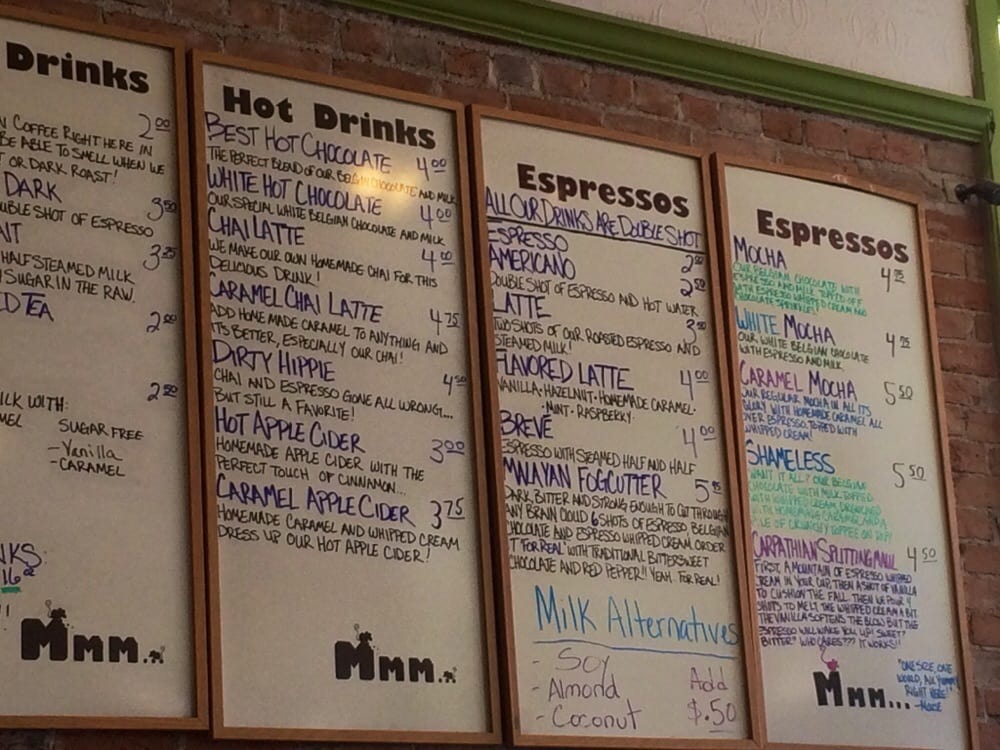 Drinks
2.00
N COFFEE RIGHT HERE IN
BE ABLE TO SMELL WHEN WE
T OR DARK ROAST!
DARK 3.50
UBLE SHOT OF ESPRESSO
3.25
HALF STEAMED MILK
SUGAR IN THE RAW.
TEA 2.00
2.50
ILK WITH:
MEL SUGAR FREE
-Vanilla
-CARAMEL
NKS
16oz
Mmm...
Hot Drinks
BEST HOT CHOCOLATE 4.00
THE PERFECT BLEND OF OUR BELGIAN CHOCOLATE AND MILK
WHITE HOT CHOCOLATE 4.00
OUR SPECIAL WHITE BELGIAN CHOCOLATE AND MILK
CHAI LATTE 4.00
WE MAKE OUR OWN HOMEMADE CHAI FOR THIS
DELICIOUS DRINK!
CARAMEL CHAI LATTE 4.75
ADD HOMEMADE CARAMEL TO ANYTHING AND
ITS BETTER, ESPECIALLY OUR CHAI!
DIRTY HIPPIE 4.50
CHAI AND ESPRESSO GONE ALL WRONG...
BUT STILL A FAVORITE!
HOT APPLE CIDER 3.00
HOMEMADE APPLE CIDER WITH THE
PERFECT TOUCH OF CINNAMON...
CARAMEL APPLE CIDER 3.75
HOMEMADE CARAMEL AND WHIPPED CREAM
DRESS UP OUR HOT APPLE CIDER!
Mmm...
Espressos
ALL OUR DRINKS ARE DOUBLE SHOT
ESPRESSO 2.00
AMERICANO 2.50
DOUBLE SHOT OF ESPRESSO AND HOT WATER
LATTE 3.50
TWO SHOTS OF OUR ROASTED ESPRESSO AND
STEAMED MILK!
FLAVORED LATTE 4.00
VANILLA·HAZELNUT·HOMEMADE CARAMEL·
·MINT·RASPBERRY·
BREVE 4.00
ESPRESSO WITH STEAMED HALF AND HALF
MALAYAN FOGCUTTER 5.95
DARK, BITTER AND STRONG ENOUGH TO CUT THROUGH
ANY BRAIN CLOUD 6 SHOTS OF ESPRESSO, BELGIAN
CHOCOLATE AND ESPRESSO WHIPPED CREAM. ORDER
IT "FOR REAL" WITH TRADITIONAL BITTERSWEET
CHOCOLATE AND RED PEPPER!! YEAH. FOR REAL!
Milk Alternatives
- Soy
- Almond Add
- Coconut $.50
Espressos
MOCHA 4.25
OUR BELGIAN CHOCOLATE WITH
ESPRESSO AND MILK, TOPPED OFF
WITH ESPRESSO WHIPPED CREAM AND
CHOCOLATE SPRINKLES!
WHITE MOCHA 4.25
OUR WHITE BELGIAN CHOCOLATE
WITH ESPRESSO AND MILK
CARAMEL MOCHA 5.50
OUR REGULAR MOCHA IN ALL ITS
GLORY WITH HOMEMADE CARAMEL ALL
OVER ESPRESSO, TOPPED WITH
WHIPPED CREAM!
SHAMELESS 5.50
WANT IT ALL? OUR BELGIAN
CHOCOLATE WITH MILK TOPPED
WITH WHIPPED CREAM, DRENCHED
WITH HOMEMADE CARAMEL AND A
PILE OF CRUNCHY TOFFEE ON TOP!
CARPATHIAN SPLITTING MAUL 4.50
FIRST, A MOUNTAIN OF ESPRESSO WHIPPED
CREAM IN YOUR CUP, THEN A SHOT OF VANILLA
TO CUSHION THE FALL. THEN WE POUR 4
SHOTS TO MELT THE WHIPPED CREAM A BIT.
THE VANILLA SOFTENS THE BLOW BUT THE
ESPRESSO WILL WAKE YOU UP! SWEET?
BITTER? WHO CARES??? IT WORKS!!
Mmm...
"ONE SIZE, ONE
WORLD, ALL YUMMY
RIGHT HERE!"